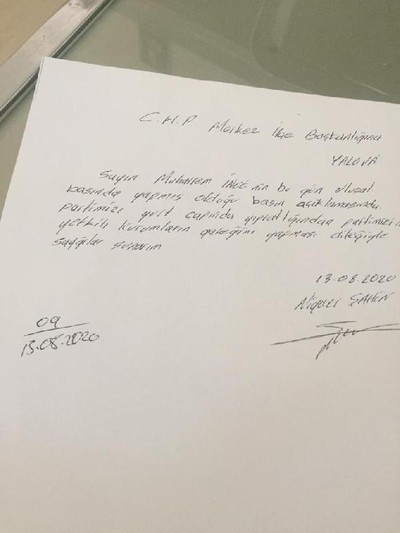 C.H.P Merkez İlçe Başkanlığına
YALOVA
Sayın Muharrem İNCE'nin bu gün ulusal
basında yapmış olduğu basın açıklamasında
partimizi yurt çapında yıprattığından partimizin
yetkili kurumların gereğini yapması dileğiyle
saygılar sunarım
13.08.2020
ŞAHİN
09
13.08.2020